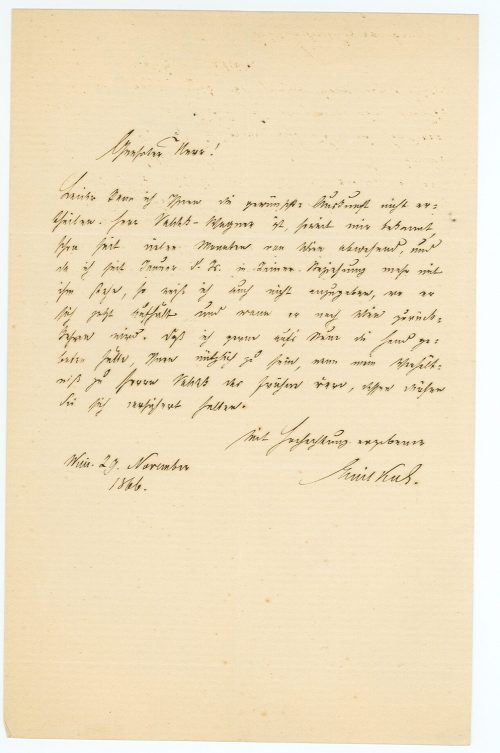 Geehrter Herr!
Leider kann ich Ihnen die gewünschte Auskunft nicht er-
theilen. Herr Valdek-Wagner ist, soweit mir bekannt,
schon seit vielen Monaten von Wien abwesend, und
da ich seit Jänner d. Js. in keiner Beziehung mehr mit
ihm stehe, so weiß ich auch nicht anzugeben, wo er
sich jetzt aufhält und wann er nach Wien zurück-
kehren wird. Daß ich gerne die Hand ge-
boten hätte, Ihnen nützlich zu sein, wenn mein Verhält-
niß zu Herrn Valdek das frühere wäre, dessen dürfen
Sie sich versichert halten.
Mit Hochachtung ergebener
Wien. 29. November
1866.
Emil Kuh.